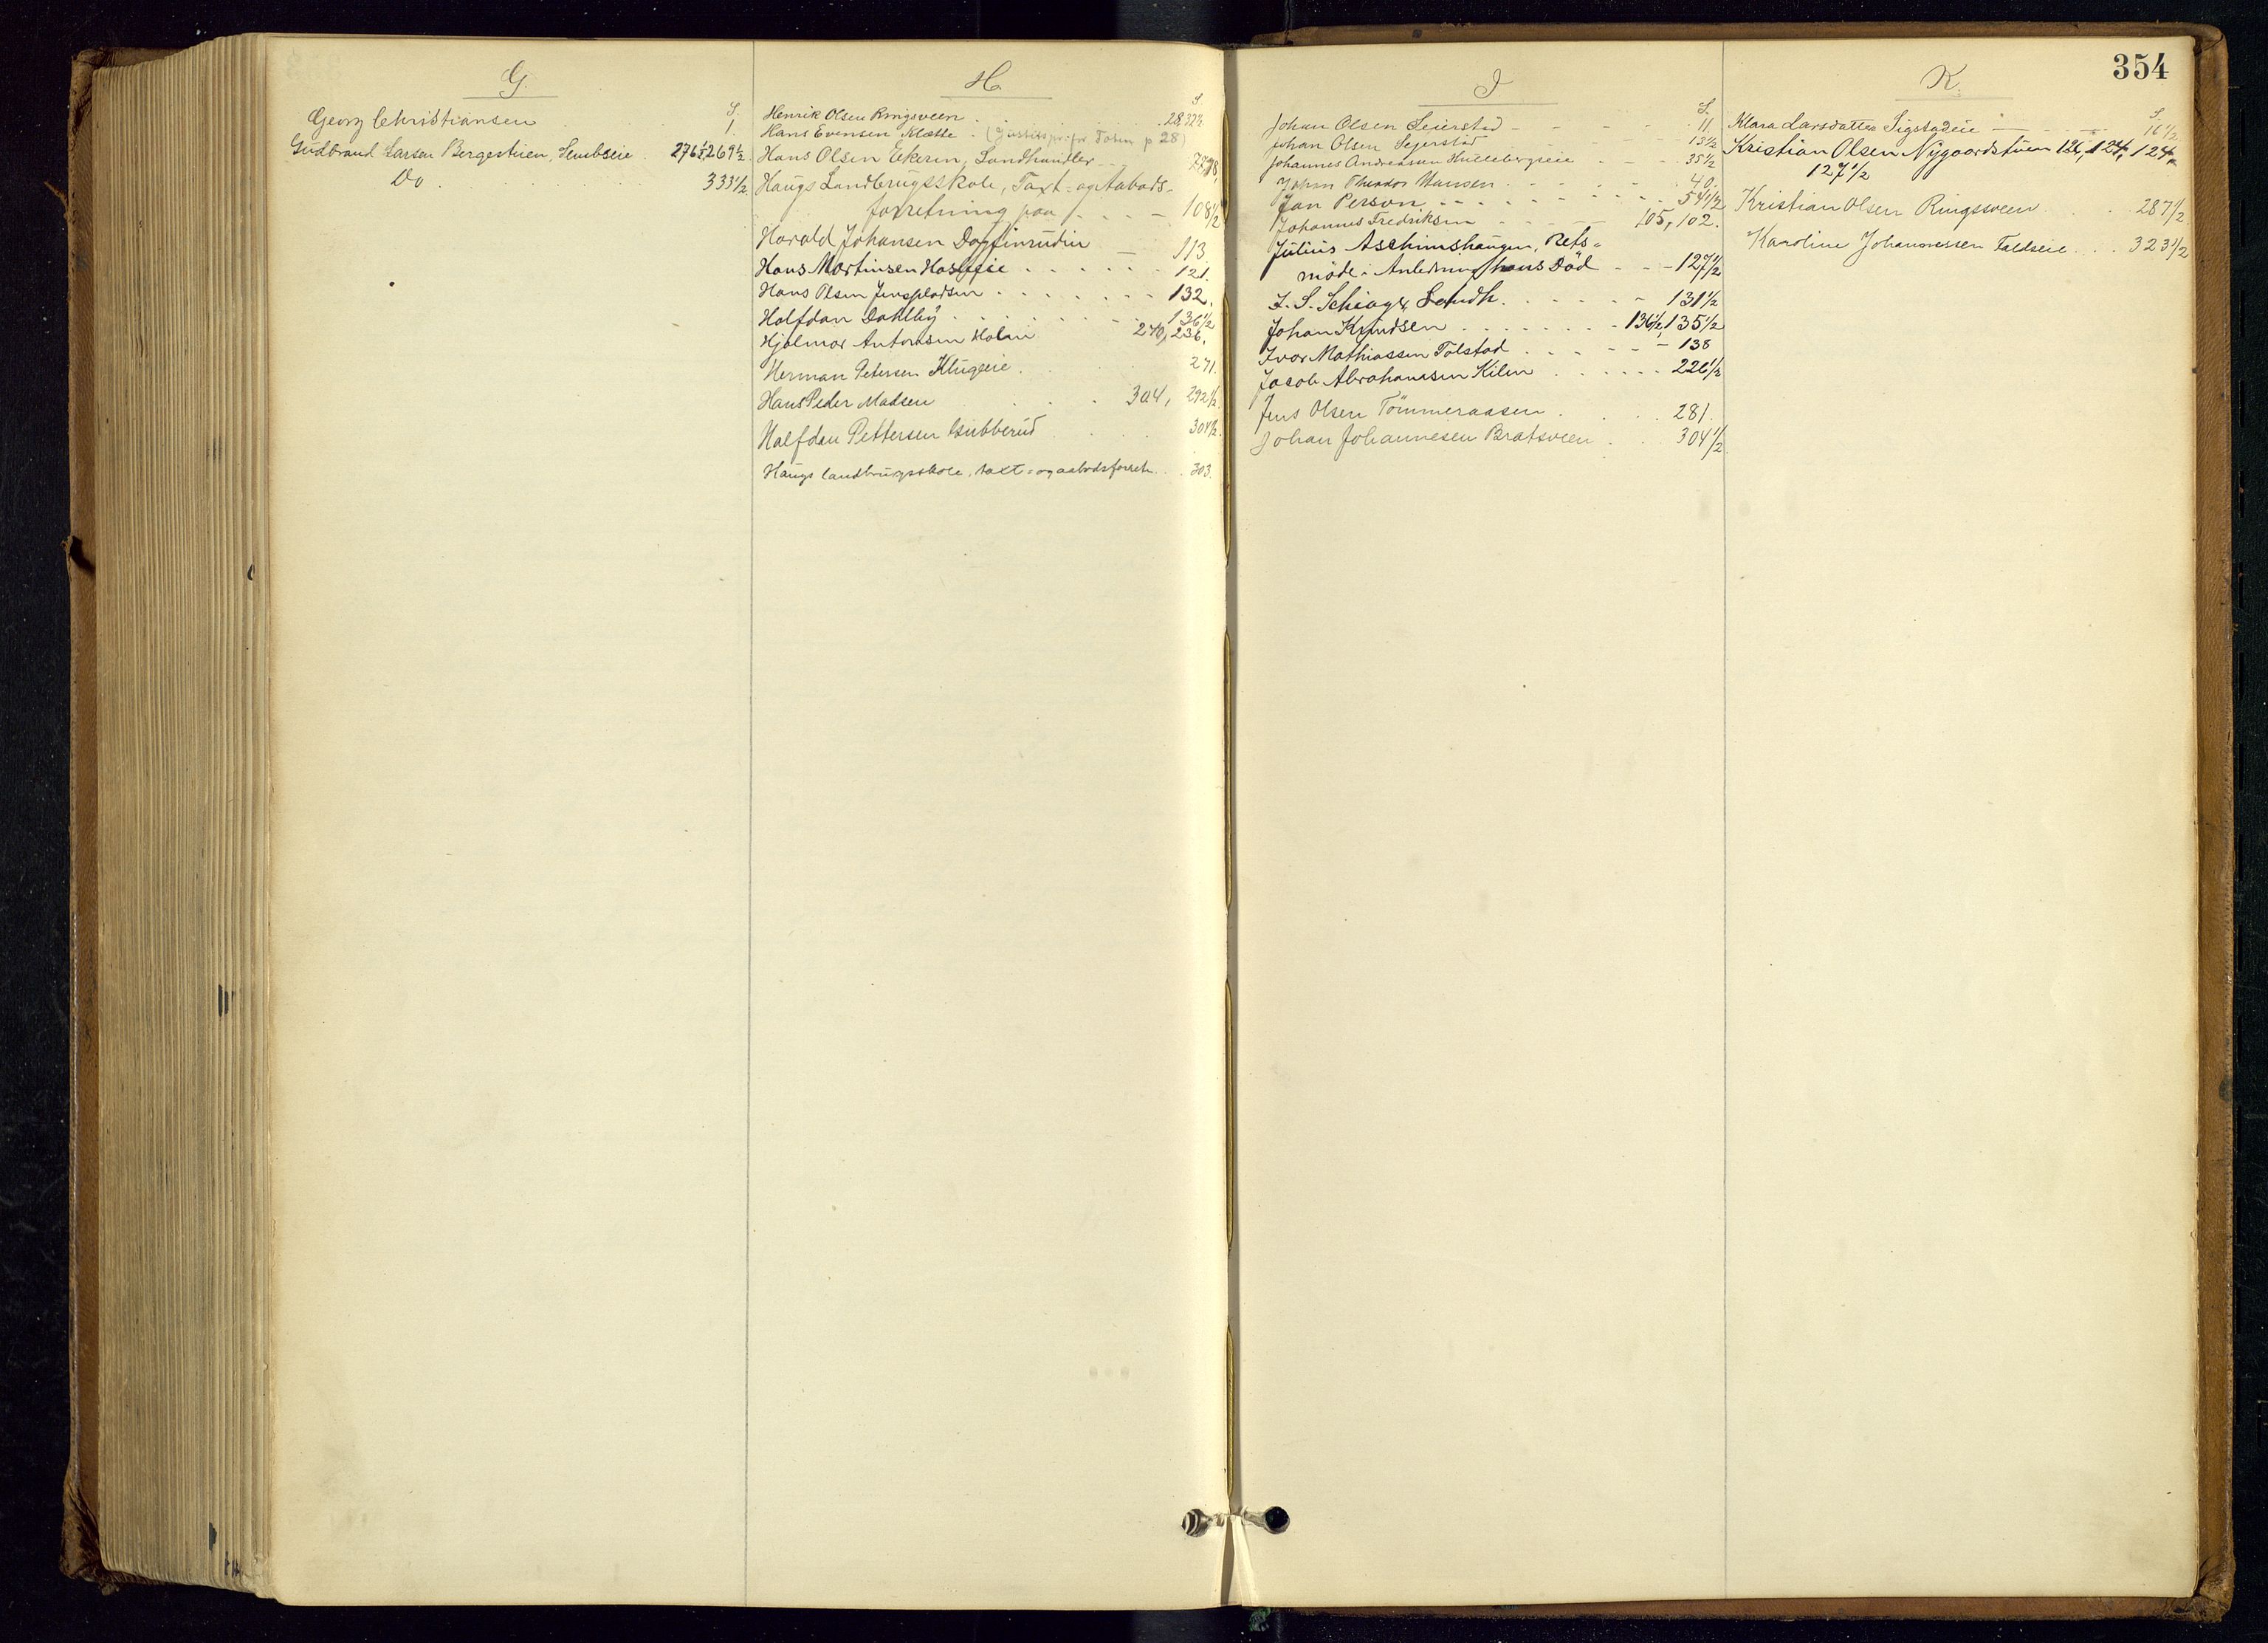 G.
S.
Georg Christiansen . . . 1.
Gudbrand Larsen Bergestuen, Sembseie . 276½, 267½.
Do . . . . . 333½.
H.
S.
Henrik Olsen Ringsveen . . . 28, 32½
Hans Evensen Klætte . (Justitspr. for Toten p 28)
Hans Olsen Ekern, Landhandler
Haugs Landbrugsskole, Taxt= og Aabods-
forretning paa . . . – 108½
Harald Johansen Dagfinrudin – 113.
Hans Martinsen . . . . . . 121.
Hans Olsen Jenspladsen . . . . . . . 132.
Halfdan Dahlby . . . . . . . 136½
Hjalmar Antonsen Holm 240, 236.
Herman Petersen Klugeie . . . 271.
Hans Peder Madsen . . . 304, 292½.
Halfdan Pettersen Gubberud . . . 304½.
Haugs landbrugsskole, taxt= og aabodsforretn. . . 303.
354
I
S.
Johan Olsen Seierstad – – – – – 11.
Johan Olsen Sejerstad – – – 13½
Johannes Andreassen Hullebergseie – – – 35½
Johan Theodor Hansen . . . . . 40.
Jan Person . . . . . . . . 54½
Johannes Fredriksen – – – – 105, 102.
Julius Aschimshaugen, Rets=
möde i Anledning hans Död – – – 127½
I. S. Schiager, Landh. . . . . . – 131½
Johan Knudsen . . . . . . . – 136½, 135½
Ivar Mathiassen Tolstad . . . – – – 138
Jacob Abrahamsen Kilen . . . . . . 226½
Jens Olsen Tömmeraasen . . . . 281.
Johan Johannesen Bratsveen . . . 304½
K.
S.
Klara Larsdatter Sigstadeie – – – 16½
Kristian Olsen Nygaardstuen 126, 124, 124,
127½
Kristian Olsen Ringsveen . . 287½
Karoline Johannessen Faldseie . . . 323½